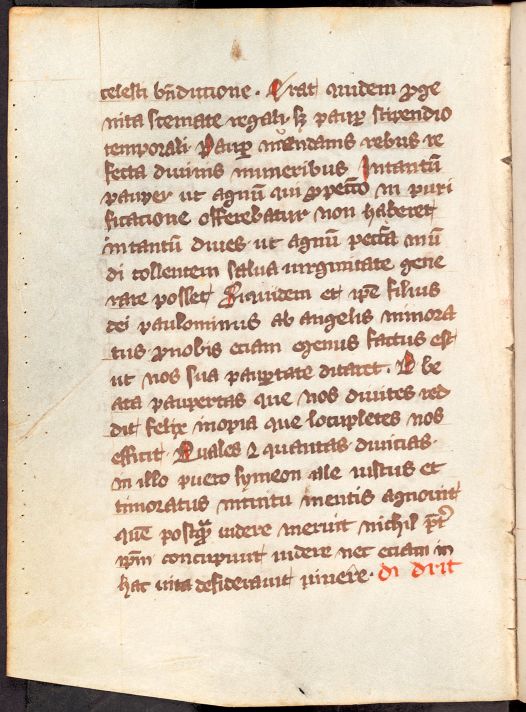 celesti bn̄dictione. Erat quidem ꝓge
nita stemate regali. sꝫ paup̲ stipendio
temporali. Paup̲ mūndanis rebus re
fecta diuinis muneribus. Intantū
pauper ut agnū qui ꝓ pecc̄o in puri
ficatione offerebatur non haberet
intantū diues. ut agnū pecc̄a mū
di tollentem salua uirginitate gene
rare posset. Siquidem et ip̄e filius
dei paulominus ab angelis minora
tus ꝓ nobis eciam egenus factus est
ut nos sua paup̲tate ditaret. O be
ata paupertas que nos diuites red
dit felix inopia que locupletes nos
efficit. Quales ⁊ quantas diuicias.
in illo puero symeon ille iustus et
timoratus intuitu mentis agnouit
quē postꝗ̄ uidere meruit nichil p̄t̄
ip̄m concupiuit uidere nec eciam in
hac uita desiderauit uiuere. di dcit